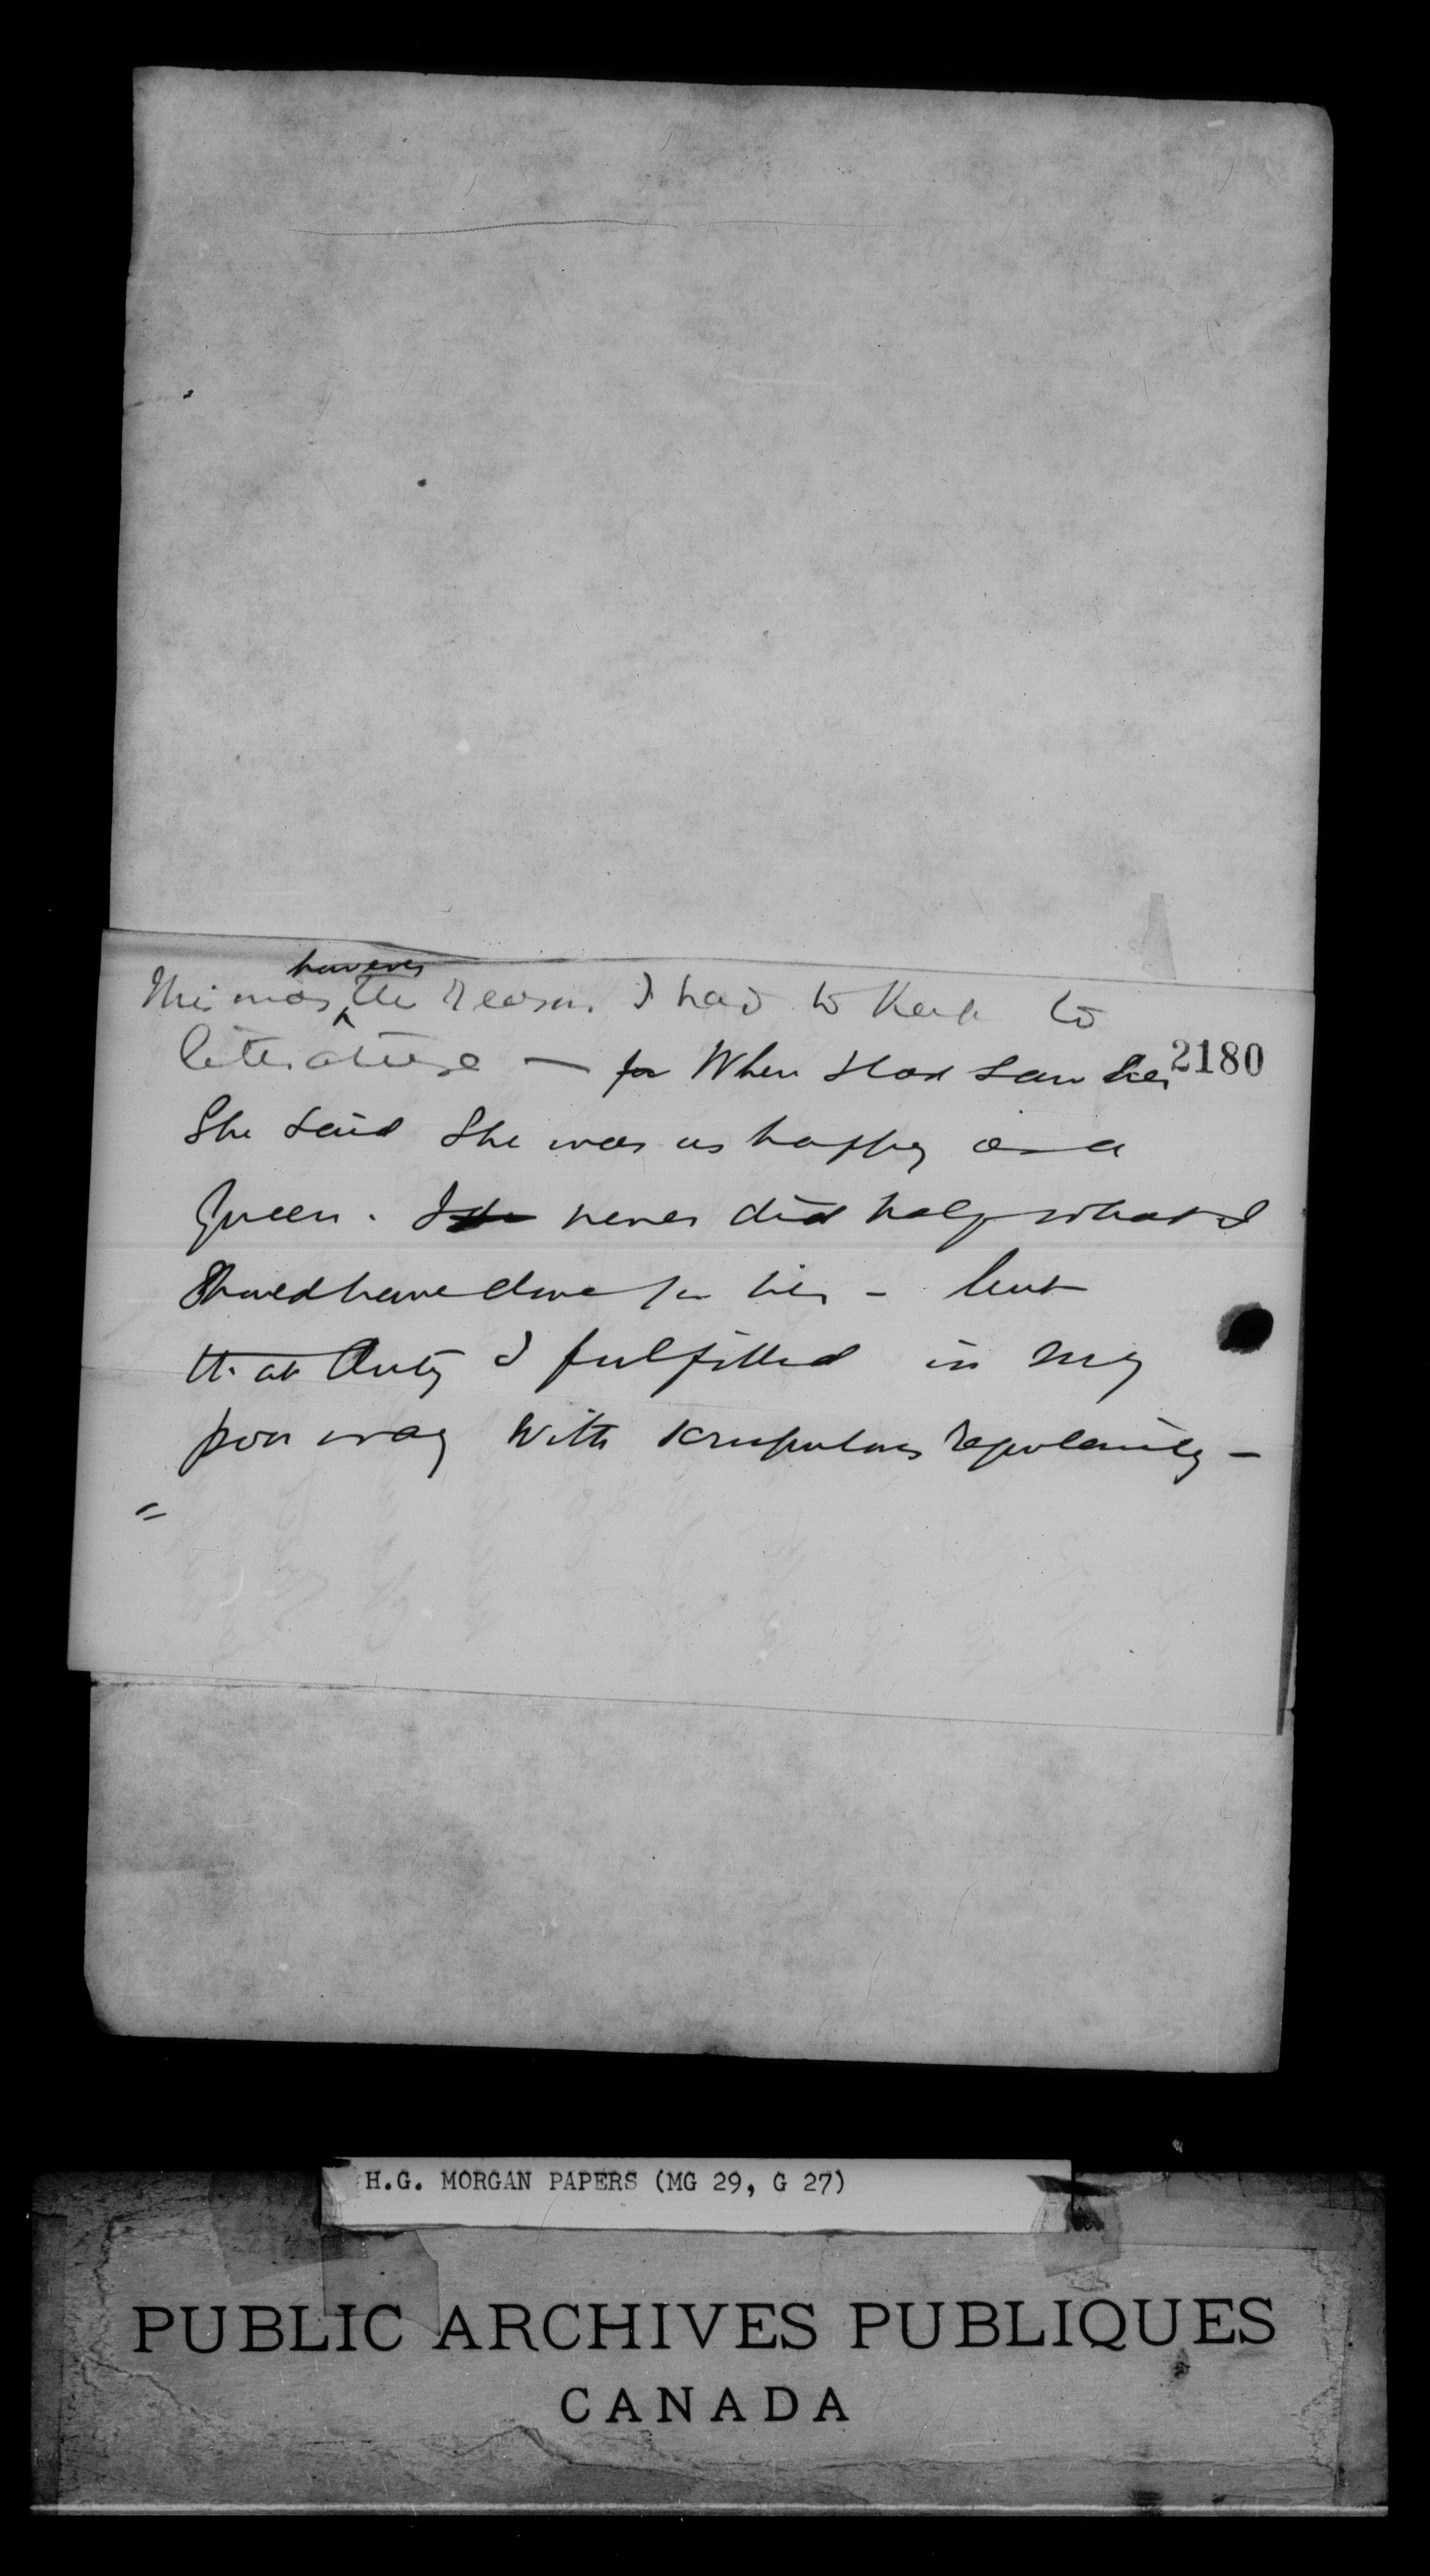 however
This was the reason I had to keep to
literature — for When Hod saw her
2180
She said She was as happy as a
Queen. I never did half what I
Should have done for her - but
that duty I fulfilled in my
poor way With scrupulous regularity -
=
H.G. MORGAN PAPERS (MG 29, G 27)
PUBLIC ARCHIVES PUBLIQUES
CANADA